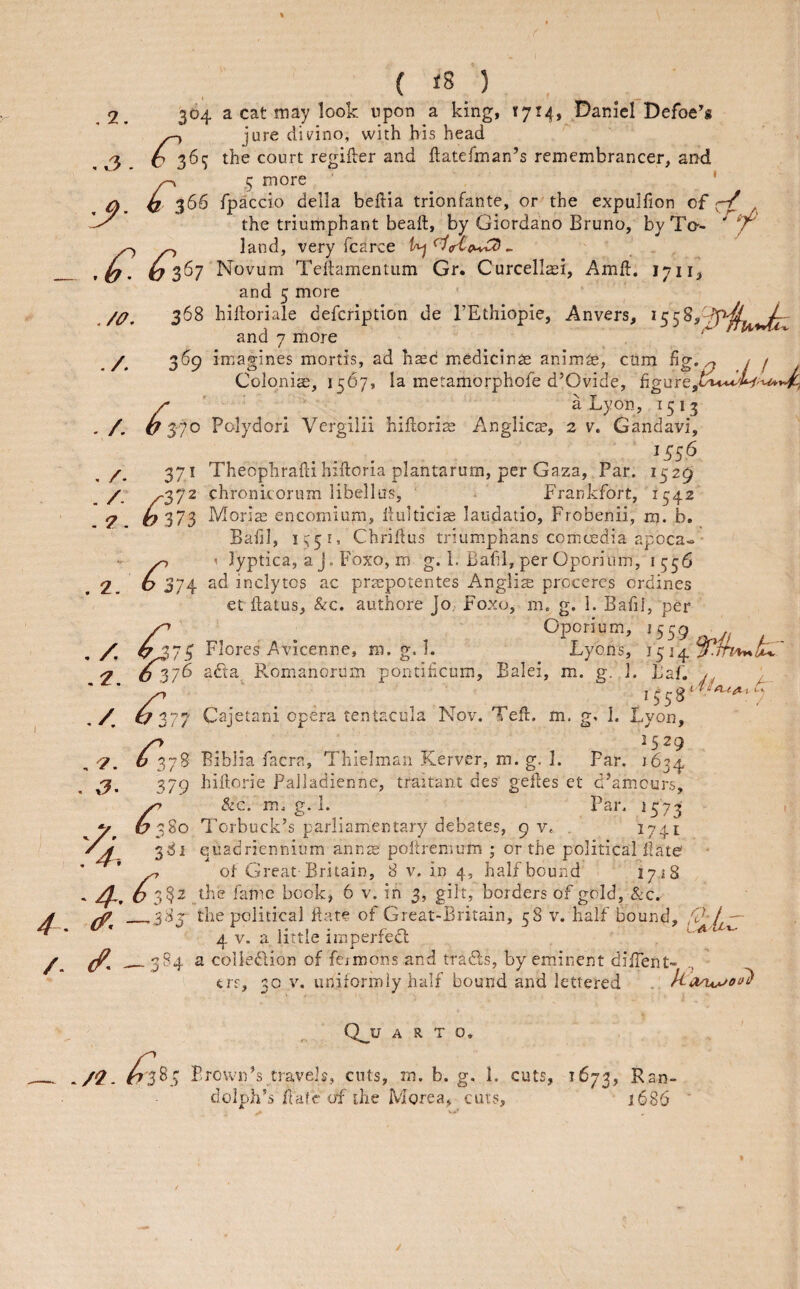 ( 18 )
. 2. 304 a cat may look upon a king, 1714, Daniel Defoe's
jure divino, with his head
. 3. 6 365 the court regiſter and ſtateſman's remembrancer, and
5 more
. 9. 6 366 ſpaccio della beſtia trionfante, or the expulſion of
the triumphant beaſt, by Giordano Bruno, by To-
land, very ſcarce
. 6. 6 367 Novum Teſtamentum Gr. Curcellæi, Amſt. 1711,
and 5 more
. 10. 368 hiſtoriale deſcription de l'Ethiopie, Anvers, 1558,
and 7 more
. 1. 369 imagines mortis, ad hæc medicinæ animæ, cum fig.
Coloniæ, 1567, la metamorphoſe d'Ovide, figure,
à Lyon, 1513
. 1. 6 370 Polydori Vergilii hiſtoriæ Anglicæ, 2 v. Gandavi,
1556
. 1. 371 Theophraſti hiſtoria plantarum, per Gaza, Par. 1529
. 1. 372 chronicorum libellus, Frankfort, 1542
. 2. 6 373 Moriæ encomium, ſtulticiæ laudatio, Frobenii, m. b.
Baſil, 1551, Chriſtus triumphans comœdia apoca-
lyptica, a J. Foxo, m g. l. Baſil, per Oporium, 1556
. 2. 6 374 ad inclytos ac præpotentes Angliæ proceres ordines
et ſtatus, &c. authore Jo. Foxo, m. g. l. Baſil, per
Oporium, 1559
. 1. 6 375 Flores Avicenne, m. g. l. Lyons, 1514
. 2. 6 376 acta Romanorum pontificum, Balei, m. g. l. Baſ.
1558
. 1. 6 377 Cajetani opera tentacula Nov. Teſt. m. g. l. Lyon,
1529
. 2. 6 378 Biblia ſacra, Thielman Kerver, m. g. l. Par. 1634
. 3. 379 hiſtorie Palladienne, traitant des geſtes et d'amours,
&c. m. g. l. Par. 1573
. 7. 6 380 Torbuck's parliamentary debates, 9 v. 1741
4. 381 quadriennium annæ poſtremum ; or the political ſtate
of Great-Britain, 8 v. in 4, half bound 1718
. 4. 6 382 the ſame book, 6 v. in 3, gilt, borders of gold, &c.
4. — 383 the political ſtate of Great-Britain, 58 v. half bound,
4 v. a little imperfect
1. — 384 a collection of ſermons and tracts, by eminent diſſent-
ers, 30 v. uniformly half bound and lettered
QUARTO.
. 12. 6 385 Brown's travels, cuts, m. b. g. l. cuts, 1673, Ran-
dolph's ſtate of the Morea, cuts, 1686